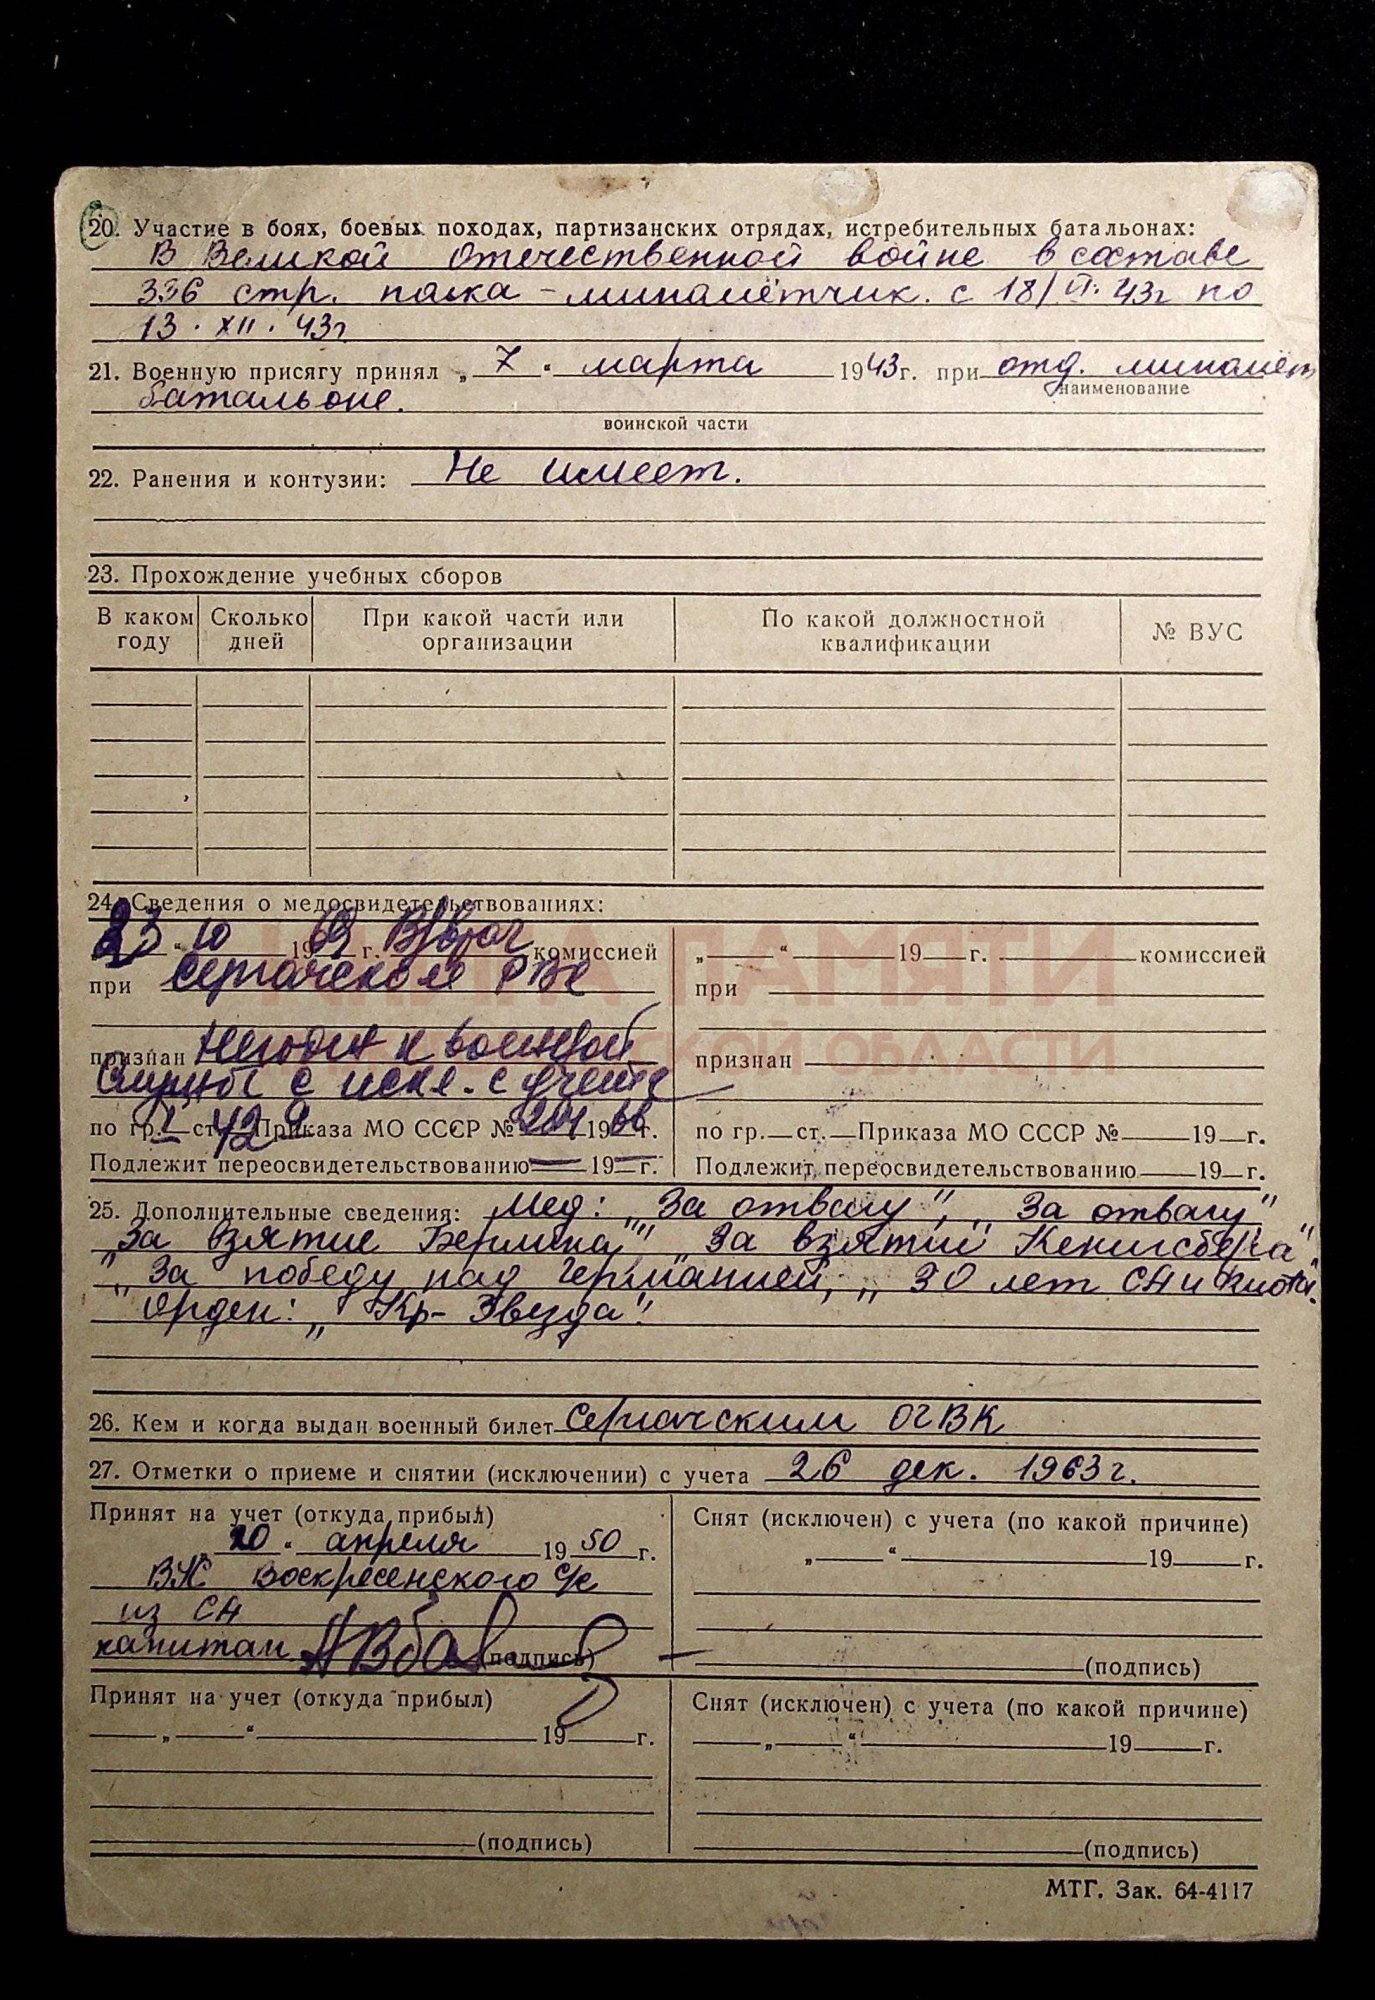 20. Участие в боях, боевых походах, партизанских отрядах, истребительных батальонах:
В Великой Отечественной войне в составе
336 стр. полка - миномётчик. с 18/VI. 43г по
13. XII. 43г
21. Военную присягу принял „7“ марта 1943г. при отд. миномётн
наименование
батальоне.
воинской части
22. Ранения и контузии: Не имеет.
23. Прохождение учебных сборов
В каком году Сколько дней При какой части или организации По какой должностной квалификации № ВУС
24. Сведения о медосвидетельствованиях:
23 “ 10 1969 г. В/врач комиссией
при Сергачском РВК
признан Негоден к военной
службе с искл. с учёта
по гр. I ст. 42 Приказа МО СССР № 1966 г.
Подлежит переосвидетельствованию — 19 — г.
„ “ 19 г. комиссией
при
признан
по гр. ст. Приказа МО СССР № 19 г.
Подлежит переосвидетельствованию 19 г.
25. Дополнительные сведения: Мед: „За отвагу", „За отвагу"
„За взятие Берлина" „За взятие Кенигсберга".
„За победу над Германией, „30 лет СА и Флота.
Орден: „Кр- Звезда".
26. Кем и когда выдан военный билет Сергачским ОГВК
27. Отметки о приеме и снятии (исключении) с учета 26 дек. 1963 г.
Принят на учет (откуда прибыл)
„20“ апреля 1950 г.
ВУС Воскресенского с/с
из СА
капитан (подпись)
Снят (исключен) с учета (по какой причине)
„ “ 19 г.
(подпись)
Принят на учет (откуда прибыл)
„ “ 19 г.
(подпись)
Снят (исключен) с учета (по какой причине)
„ “ 19 г.
(подпись)
МТГ. Зак. 64-4117